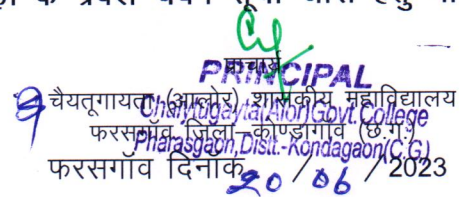 प्राचार्य
PRINCIPAL
चैयतूगायता (आलोर) शासकीय महाविद्यालय
Chaiytugayta(Alor)Govt.College
फरसगाँव जिला–कोण्डागांव (छ.ग.)
Pharasgaon,Distt.-Kondagaon(C.G)
फरसगाँव दिनाँक 20 / 06 / 2023